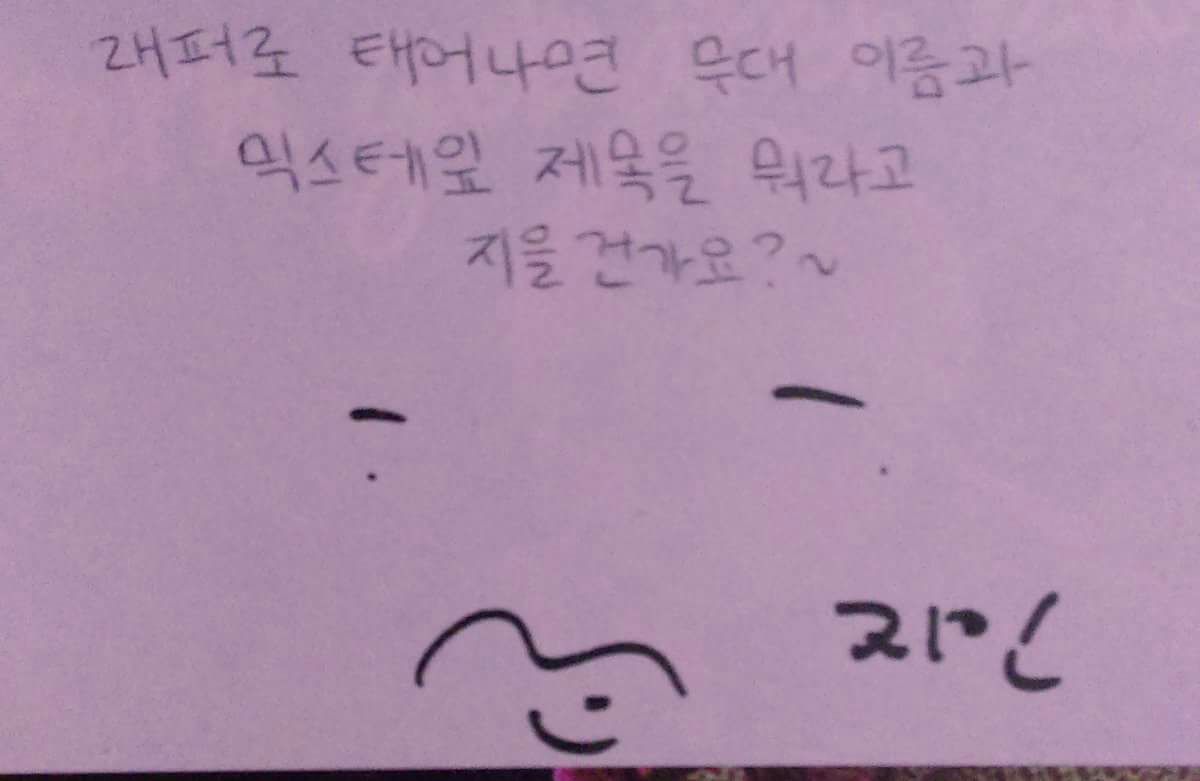 래퍼로 태어나면 무대 이름과
믹스테잎 제목을 뭐라고
지을 건가요?~